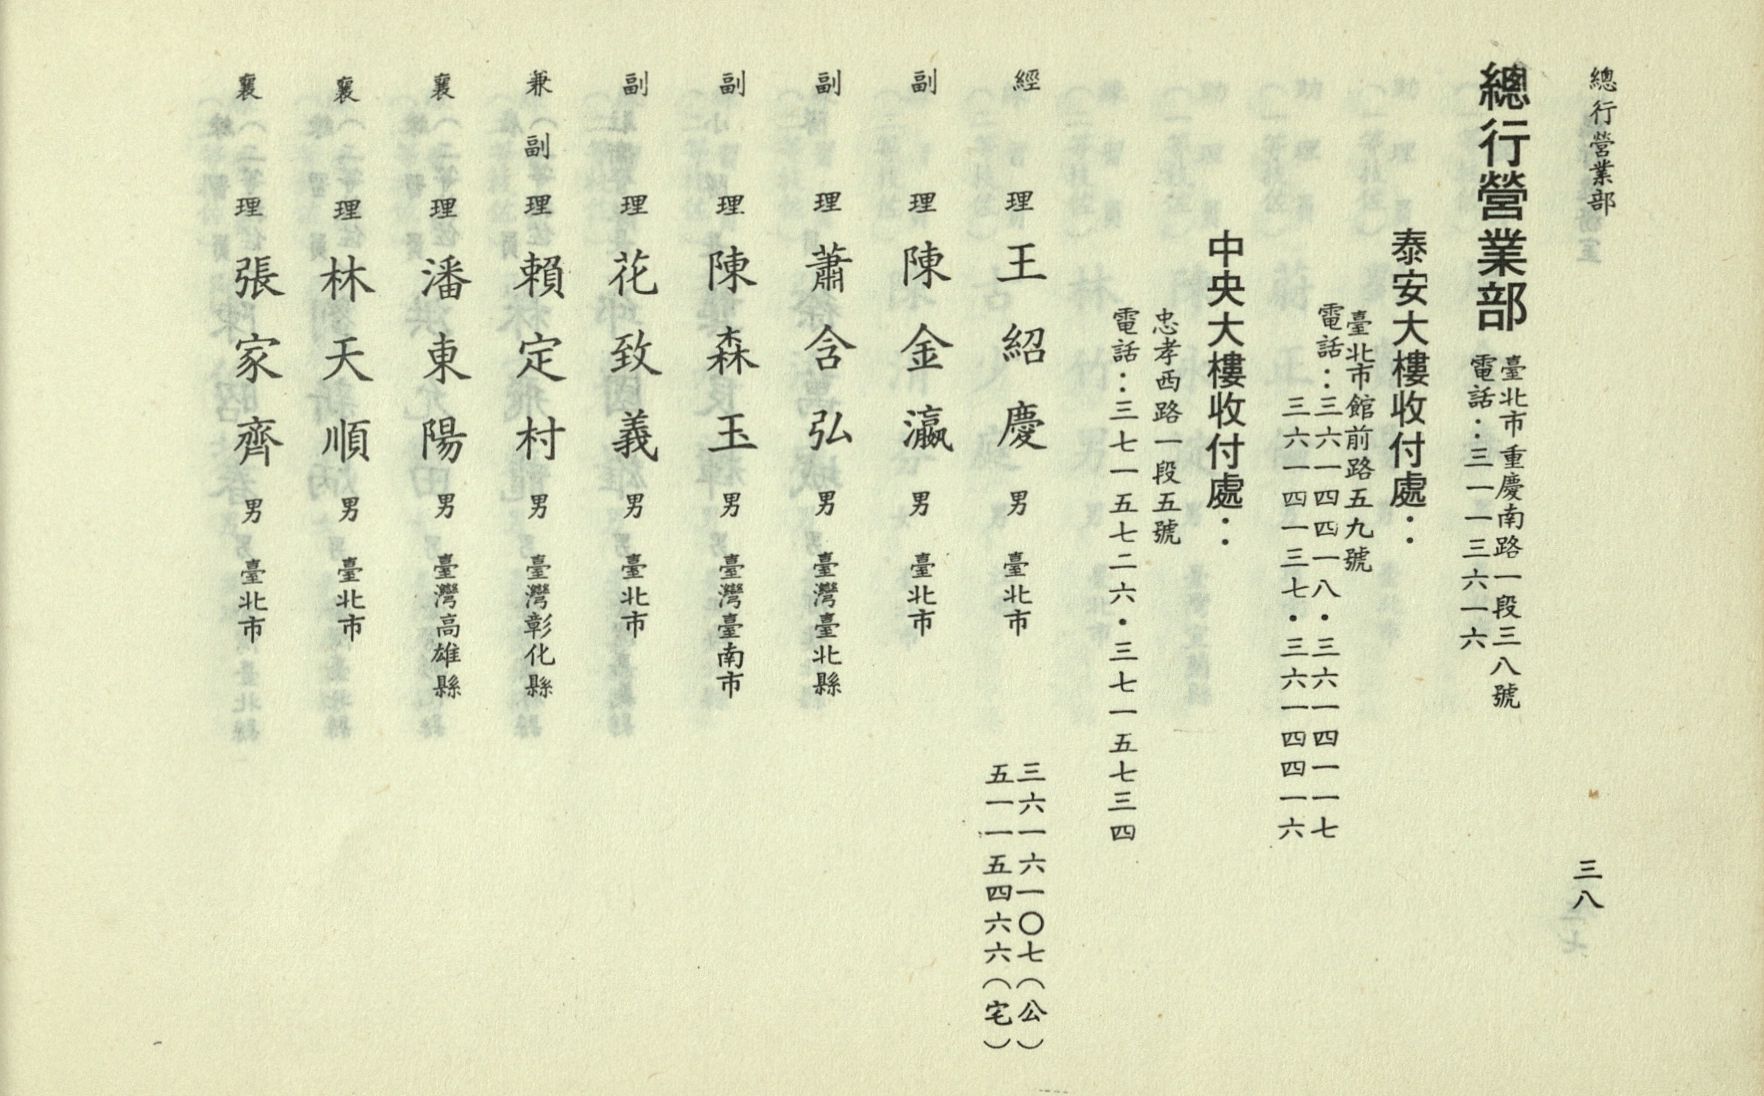 總行營業部
三八
總行營業部
臺北市重慶南路一段三八號
電話：三一一三六一六
泰安大樓收付處：
臺北市館前路五九號
電話：三六一四四一八・三六一四一一七
三六一四一三七・三六一四四一六
中央大樓收付處：
忠孝西路一段五號
電話：三七一五七二六・三七一五七三四
經理 王紹慶 男 臺北市 三六一六一〇七（公）
五一一五四六六（宅）
副理 陳金瀛 男 臺北市
副理 蕭含弘 男 臺灣臺北縣
副理 陳森玉 男 臺灣臺南市
副理 花致義 男 臺北市
兼副理 賴定村 男 臺灣彰化縣
襄理 潘東陽 男 臺灣高雄縣
襄理 林天順 男 臺北市
襄理 張家齊 男 臺北市